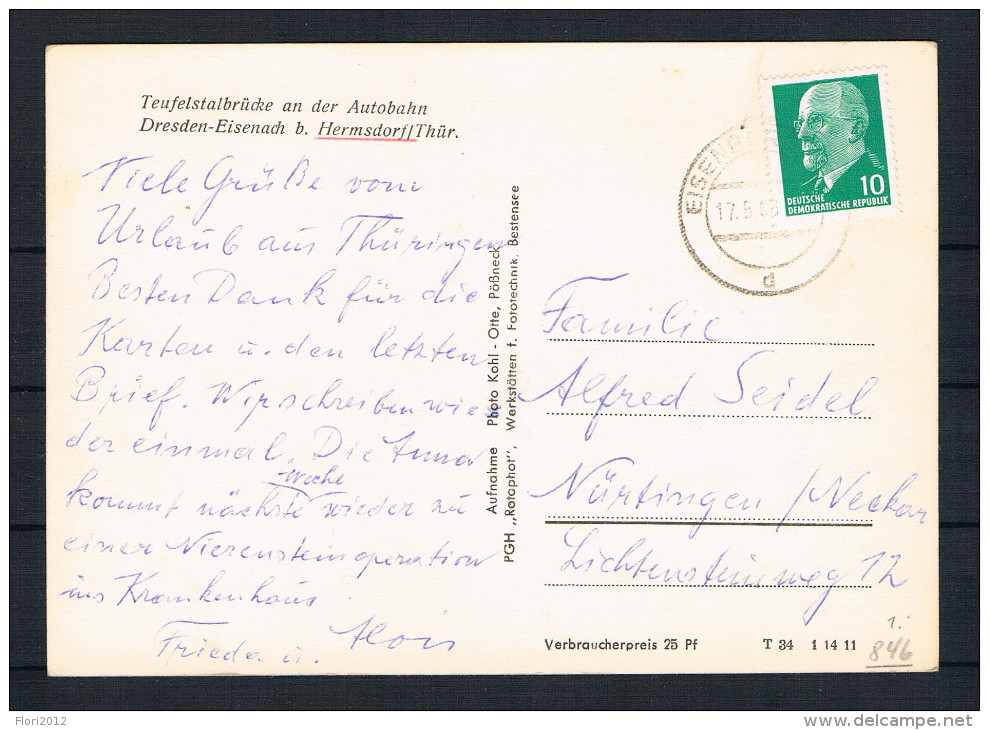 Teufelstalbrücke an der Autobahn
Dresden-Eisenach b. Hermsdorf/Thür.
Viele Grüße vom
Urlaub aus Thüringen
Besten Dank für die
Karten u. den letzten
Brief. Wir schreiben wie
der einmal. Die Anna
kommt nächste Woche wieder zu
einer Nierensteinoperation
ins Krankenhaus
Frieda u. Alois
Aufnahme Photo Kohl - Otte, Pößneck
PGH „Rotophot", Werkstätten f. Fototechnik, Bestensee
EISENBERG
17.9.6
d
10
DEUTSCHE
DEMOKRATISCHE REPUBLIK
Familie
Alfred Seidel
Nürtingen / Neckar
Lichtensteinweg 12
Verbraucherpreis 25 Pf
T 34 1 14 11
1.-
846
Flori2012
www.delcampe.net